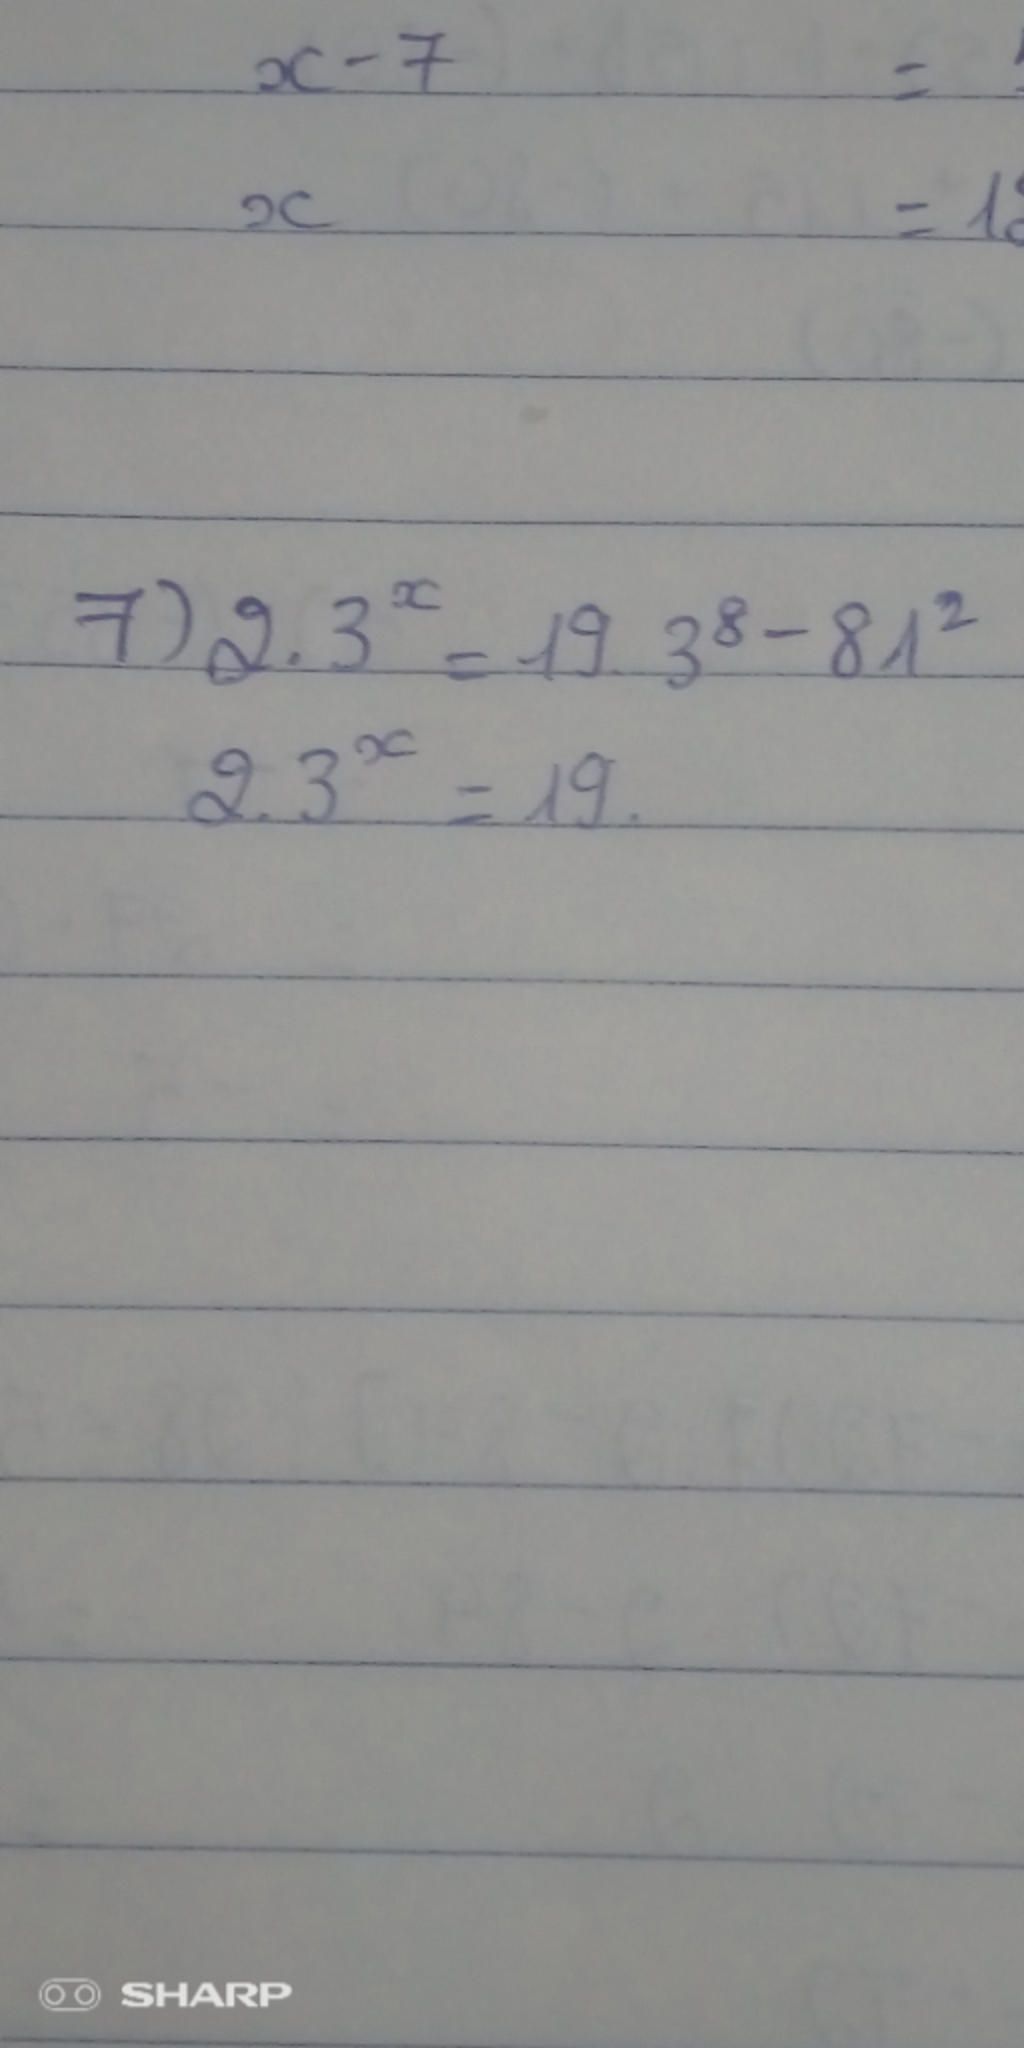 x - 7 =
x = 18
7) 2.3ˣ = 19. 3⁸ - 81²
2.3ˣ = 19.
SHARP